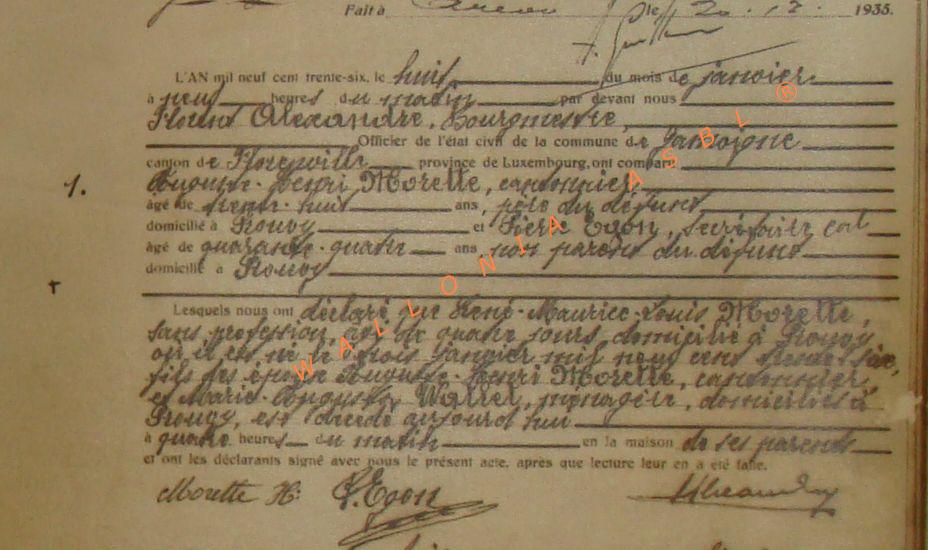 Fait à le 20.12. 1935.
L'AN mil neuf cent trente-six, le huit du mois de janvier
à neuf heures du matin par devant nous
Florent Alexandre, Bourgmestre,
Officier de l'état civil de la commune de Jamoigne
canton de Florenville province de Luxembourg, ont comparu
1.
Auguste-Henri Morette, cantonnier
âgé de trente-huit ans, père du défunt
domicilié à Prouvy et Pierre Egon, secrétaire col
âgé de quarante-quatre ans, non parent du défunt
domicilié à Prouvy
Lesquels nous ont déclaré que René-Maurice-Louis Morette,
sans profession, âgé de quatre jours, domicilié à Prouvy,
où il est né le trois janvier mil neuf cent trente-six,
fils des époux Auguste-Henri Morette, cantonnier,
et Marie-Augustine Watrel, ménagère, domiciliés à
Prouvy, est décédé aujourd'hui
à quatre heures du matin en la maison de ses parents
et ont les déclarants signé avec nous le présent acte, après que lecture leur en a été faite.
Morette H. P. Egon Alexandre
WALLONIA ASBL ®